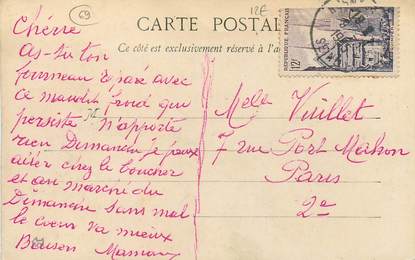 69
12F
CARTE POSTALE
Ce côté est exclusivement réservé à l'a
REPUBLIQUE FRANÇAISE
12F
Chérie
As-tu ton
fourneau réparé avec
ce maudit froid qui
persiste n'apporte
rien Dimanche je peux
aller chez le boucher
et au marché du
Dimanche sans mal
le coeur va mieux
Baisers Maman
Melle Vuillet
7 rue Port Mahon
Paris
2e